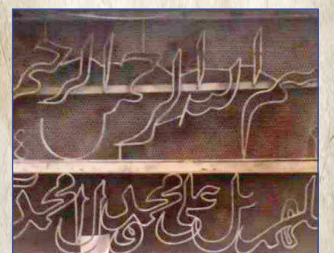 بسم الله الرحمن الرحيم
اللهم صل على محمد وآل محمد